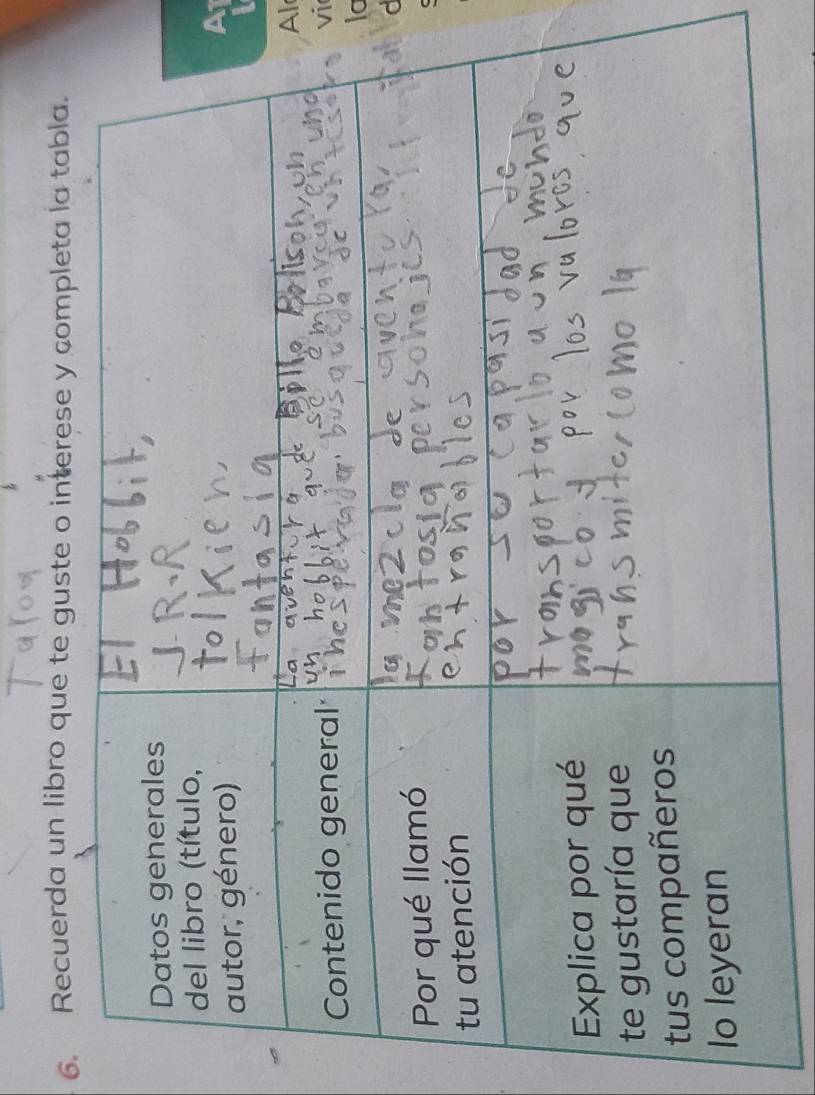 Taroa
6. Recuerda un libro que te guste o interese y completa la tabla.
Datos generales
del libro (título,
autor, género)
El Hobbit,
J.R.R
tolkien,
fantasia
Contenido general
La aventura de Bilbo Bolison, un
un hobbit que se embarca en una
inesperada busqueda de un tesoro
Por qué llamó
tu atención
la mezcla de aventura,
fantosia personajes
entrañables
Explica por qué
te gustaría que
tus compañeros
lo leyeran
por su capasidad de
transportarlo a un mundo
magico y por los valores que
transmite, como la